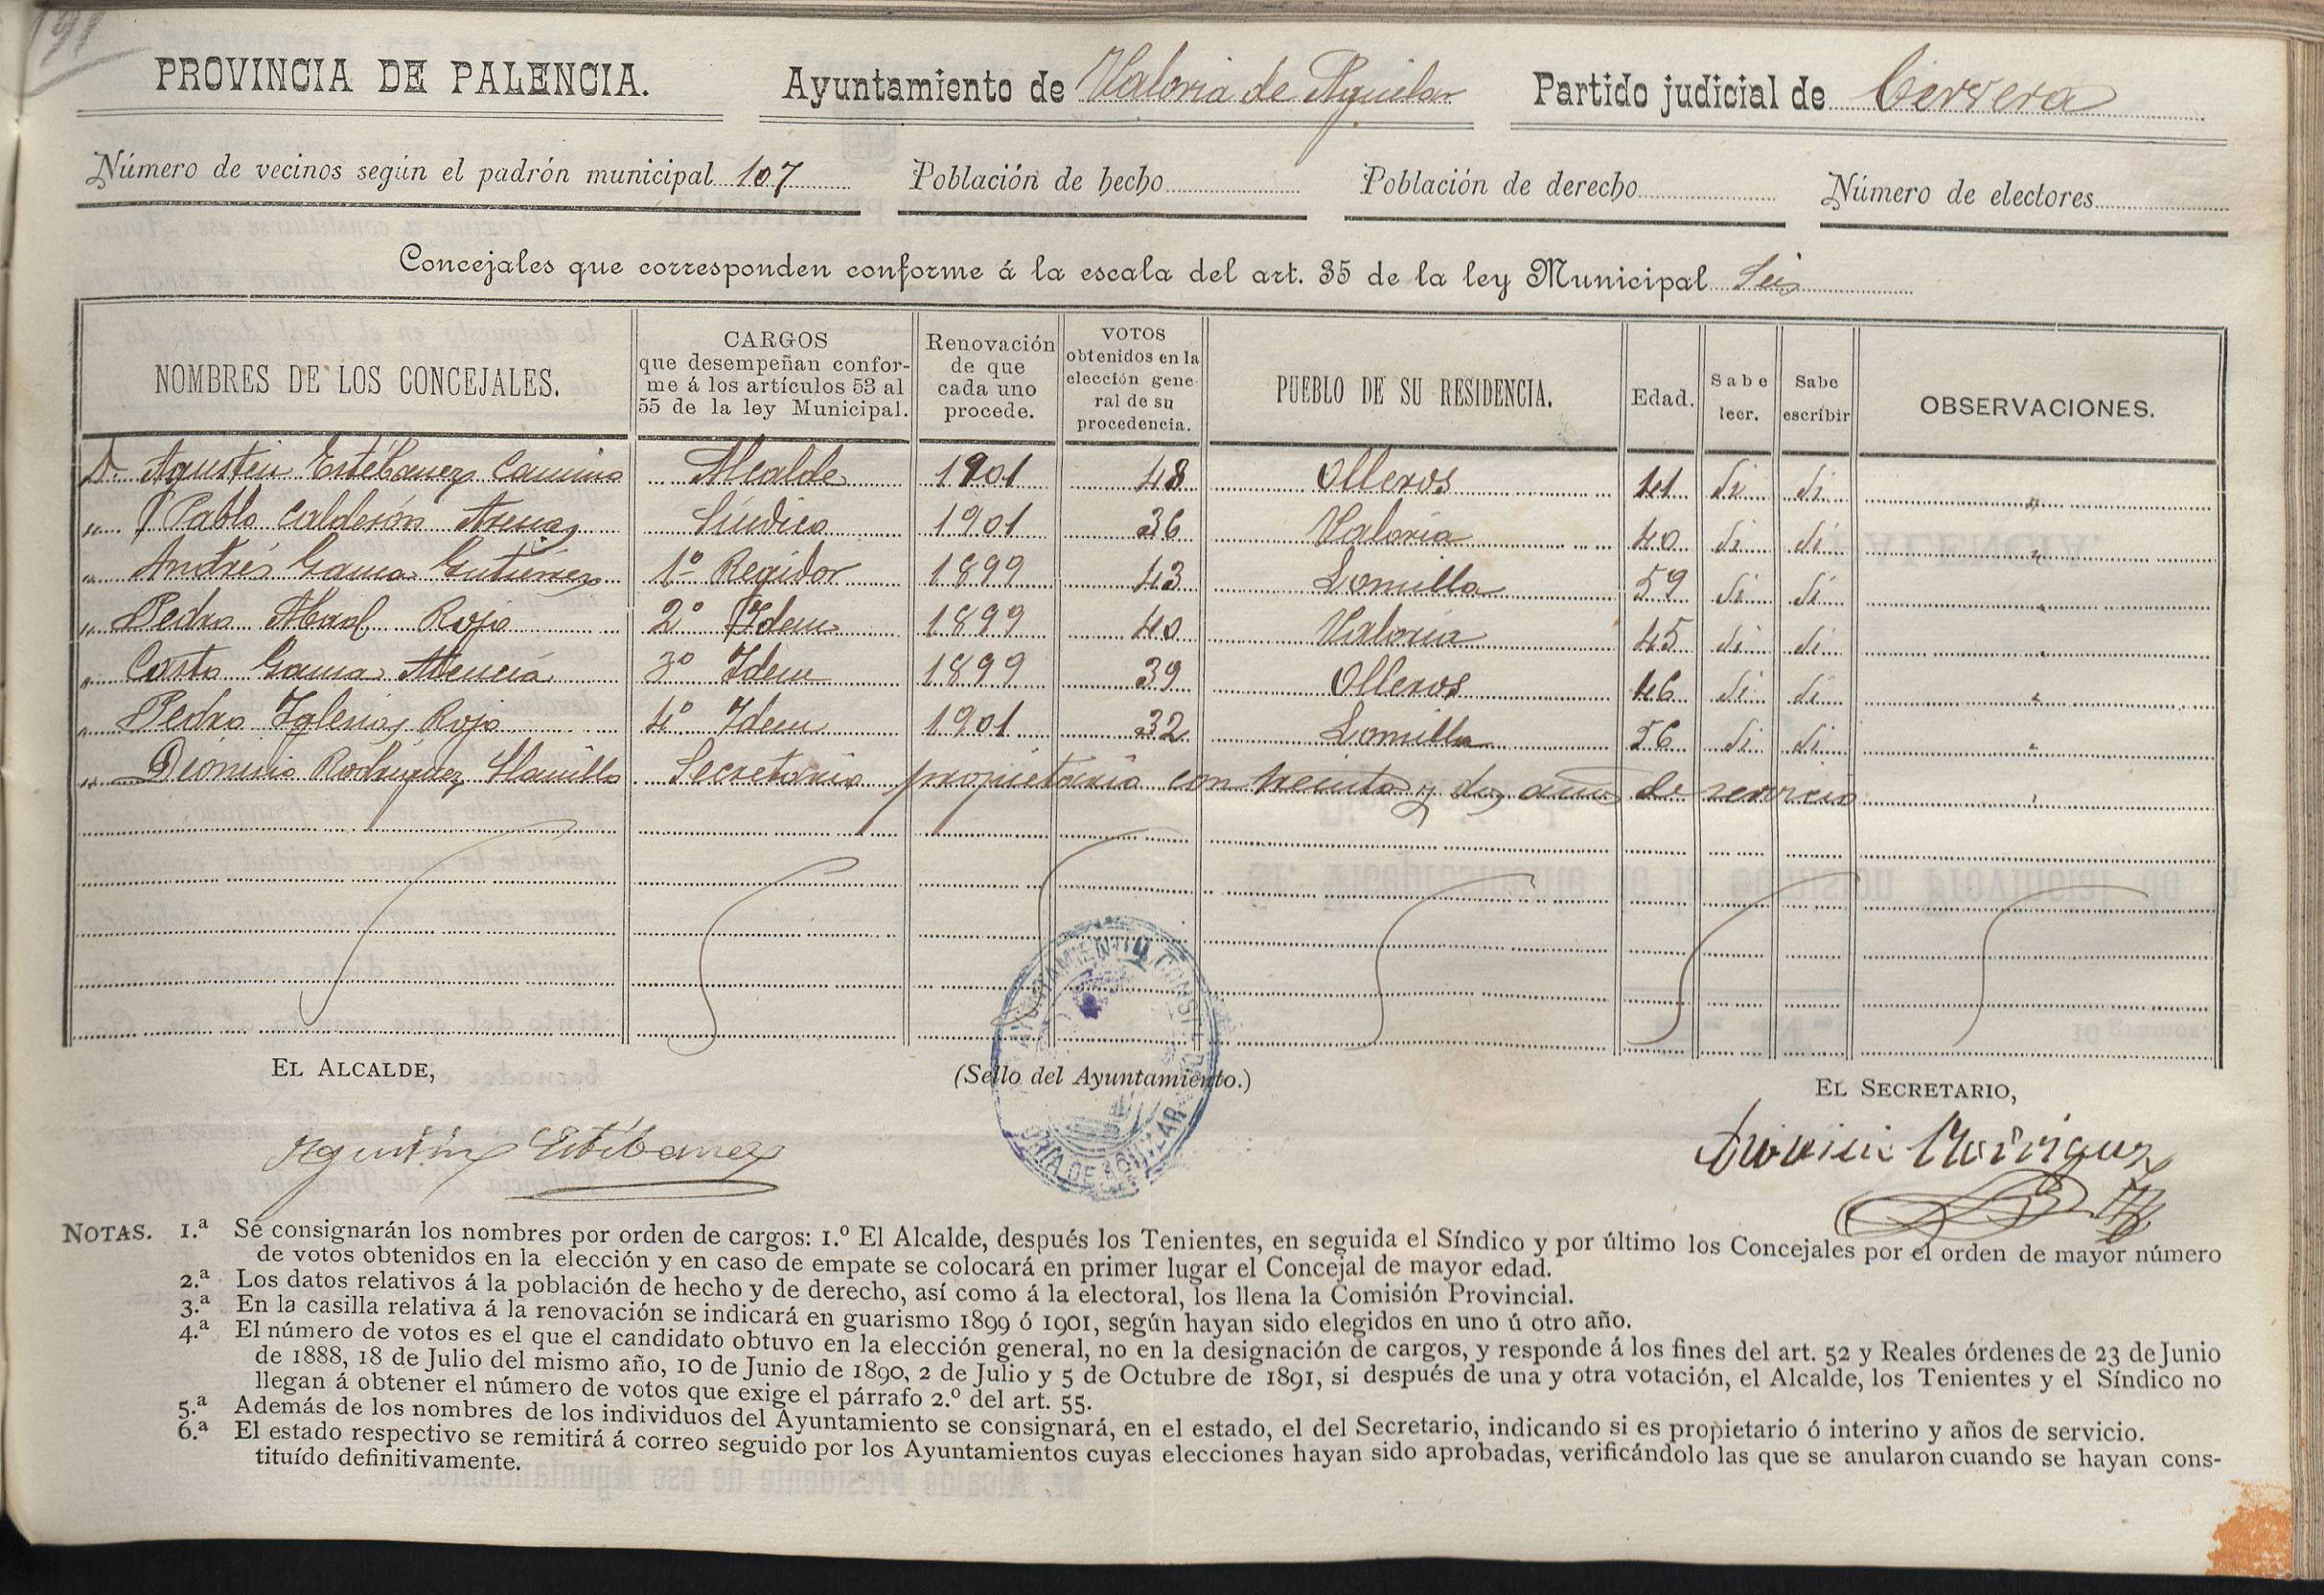 191
PROVINCIA DE PALENCIA. Ayuntamiento de Valoria de Aguilar Partido judicial de Cervera
Número de vecinos según el padrón municipal 107 Población de hecho Población de derecho Número de electores
Concejales que corresponden conforme á la escala del art. 35 de la ley Municipal Seis
NOMBRES DE LOS CONCEJALES. CARGOS que desempeñan conforme á los artículos 53 al 55 de la ley Municipal. Renovación de que cada uno procede. VOTOS obtenidos en la elección general de su procedencia. PUEBLO DE SU RESIDENCIA. Edad. Sabe leer. Sabe escribir OBSERVACIONES.
D. Agustín Estébanez Camino Alcalde 1901 48 Olleros 41 Si Si "
" Pablo Calderón Arenas Síndico 1901 36 Valoria 40 Si Si "
" Andrés Gama Gutiérrez 1º Regidor 1899 43 Lomilla 59 Si Si "
" Pedro Abad Rojo 2º Idem 1899 40 Valoria 45 Si Si "
" Casto Gama Atencia 3º Idem 1899 39 Olleros 46 Si Si "
" Pedro Iglesias Rojo 4º Idem 1901 32 Lomilla 56 Si Si "
" Dionisio Rodríguez Secretario propietario con treinta y dos años de servicio "
EL ALCALDE, (Sello del Ayuntamiento.) EL SECRETARIO,
AYUNTAMIENTO CONSTI
DE AGUILAR
Agustín Estébanez Dionisio Rodríguez
NOTAS. 1.ª Se consignarán los nombres por orden de cargos: 1.º El Alcalde, después los Tenientes, en seguida el Síndico y por último los Concejales por el orden de mayor número
de votos obtenidos en la elección y en caso de empate se colocará en primer lugar el Concejal de mayor edad.
2.ª Los datos relativos á la población de hecho y de derecho, así como á la electoral, los llena la Comisión Provincial.
3.ª En la casilla relativa á la renovación se indicará en guarismo 1899 ó 1901, según hayan sido elegidos en uno ú otro año.
4.ª El número de votos es el que el candidato obtuvo en la elección general, no en la designación de cargos, y responde á los fines del art. 52 y Reales órdenes de 23 de Junio
de 1888, 18 de Julio del mismo año, 10 de Junio de 1890, 2 de Julio y 5 de Octubre de 1891, si después de una y otra votación, el Alcalde, los Tenientes y el Síndico no
llegan á obtener el número de votos que exige el párrafo 2.º del art. 55.
5.ª Además de los nombres de los individuos del Ayuntamiento se consignará, en el estado, el del Secretario, indicando si es propietario ó interino y años de servicio.
6.ª El estado respectivo se remitirá á correo seguido por los Ayuntamientos cuyas elecciones hayan sido aprobadas, verificándolo las que se anularon cuando se hayan cons-
tituído definitivamente.